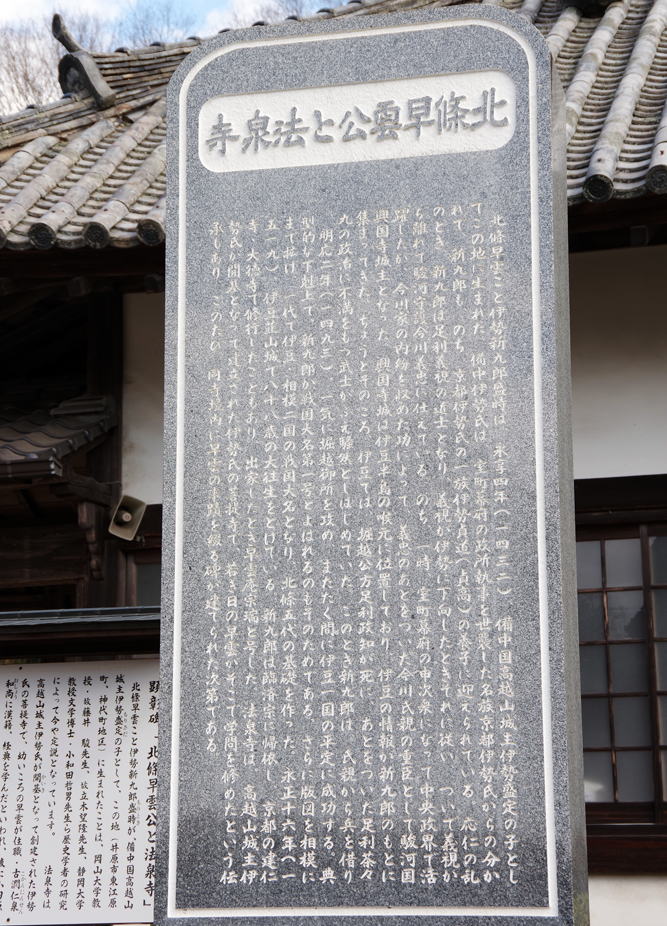 北條早雲公と法泉寺
北條早雲こと伊勢新九郎盛時は、永享四年(一四三二)備中国高越山城主伊勢盛定の子とし
てこの地に生まれた。備中伊勢氏は、室町幕府の政所執事を世襲した名族京都伊勢氏からの分か
れで、新九郎も、のち、京都伊勢氏の一族伊勢貞道(貞高)の養子に迎えられている。応仁の乱
のとき、新九郎は足利義視の近士となり、義視が伊勢に下向したときそれに従
ら離れて駿河守護今川義忠に仕えている。のち、一時、室町幕府の申次衆になって中央政界で活
躍したが、今川家の内紛を収めた功によって、義忠のあとをついだ今川氏親の重臣として駿河国
興国寺城主となった。興国寺城は伊豆半島の喉元に位置しており、伊豆の情報が新九郎のもとに
集まってきた。ちょうどそのころ、伊豆では、堀越公方足利政知が死に、あとをついだ足利茶々
丸の政治に不満をもつ武士がふえ騒然としはじめていた。このとき新九郎は、氏親から兵を借り
明応二年(一四九三)、一気に堀越御所を攻め、またたく間に伊豆一国の平定に成功する。典
型的な下剋上で、新九郎が戦国大名第一号とよばれるのもそのためである。さらに版図を相模に
まで拡げ、一代で伊豆・相模二国の戦国大名となり、北條五代の基礎を作った。永正十六年(一
五一九)、伊豆韮山城で八十八歳の大往生をとげている。新九郎は臨済宗に帰依し、京都の建仁
寺・大徳寺で修行したこともあり、出家したとき早雲庵宗瑞と号した。法泉寺は、高越山城主伊
勢氏が開基となって建立された伊勢氏の菩提寺で、若き日の早雲がそこで学問を修めたという伝
承もあり、このたび、同寺境内に早雲の事蹟を綴る碑が建てられた次第である。
顕彰碑「北條早雲公と法泉寺」
北條早雲こと伊勢新九郎盛時が、備中国高越山
城主伊勢盛定の子として、この地(井原市東江原
町、神代町地区)に生まれたことは、岡山大学教
授・故藤井 駿先生、故立木望隆先生、静岡大学
教授文学博士・小和田哲男先生ら歴史学者の研究
によって今や定説となっています。
法泉寺は
高越山城主伊勢氏が開基となって創建された伊勢
氏の菩提寺で、幼いころの早雲が住職、古澗仁泉
和尚に漢籍、経典を学んだといわれ